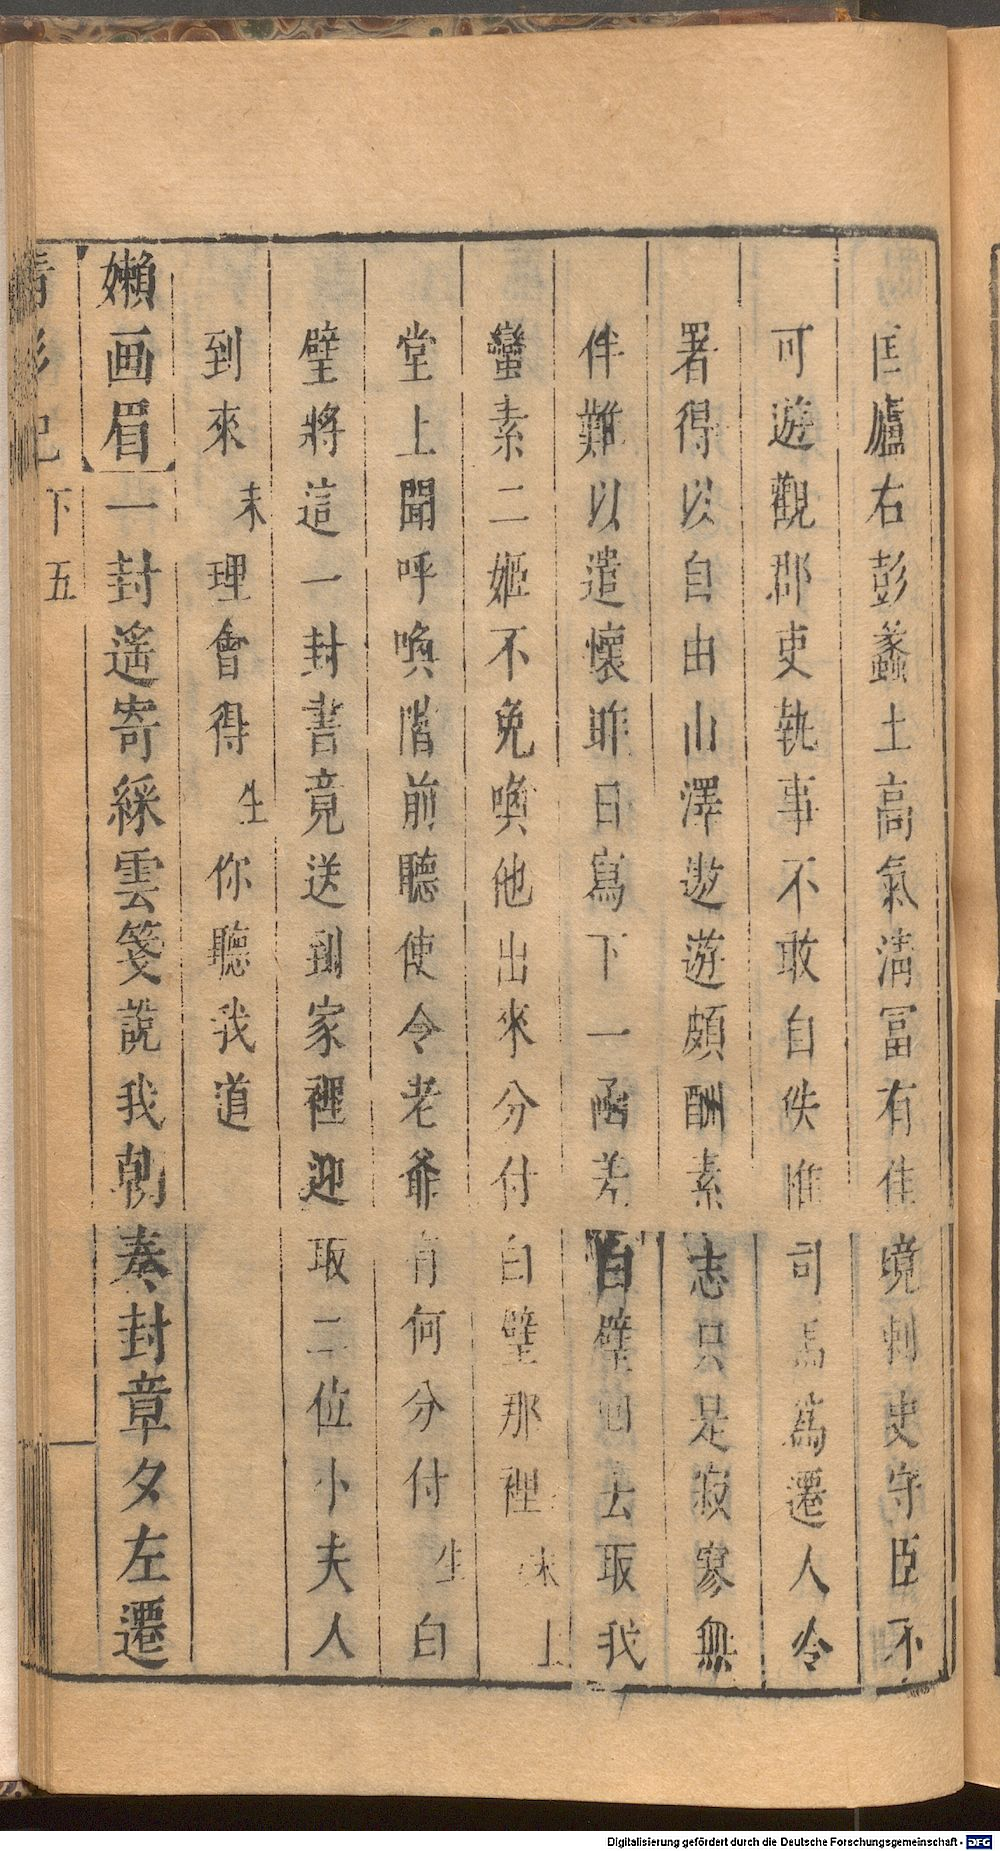 匡廬右彭蠡土高氣清冨有佳境刺史守臣不
可遊觀郡吏執事不敢自佚惟司馬為遷人令
署得以自由山澤遨遊頗酬素志只是寂寥無
伴難以遣懷昨日寫下一函差白璧回去取我
蠻素二姬不免喚他出來分付白璧那裡末上
堂上聞呼喚階前聽使令老爺有何分付生白
璧將這一封書竟送到家裡迎取二位小夫人
到來末理會得生你聽我道
嬾画眉一封遙寄綵雲箋說我朝奏封章夕左遷
下五
Digitalisierung gefördert durch die Deutsche Forschungsgemeinschaft - DFG